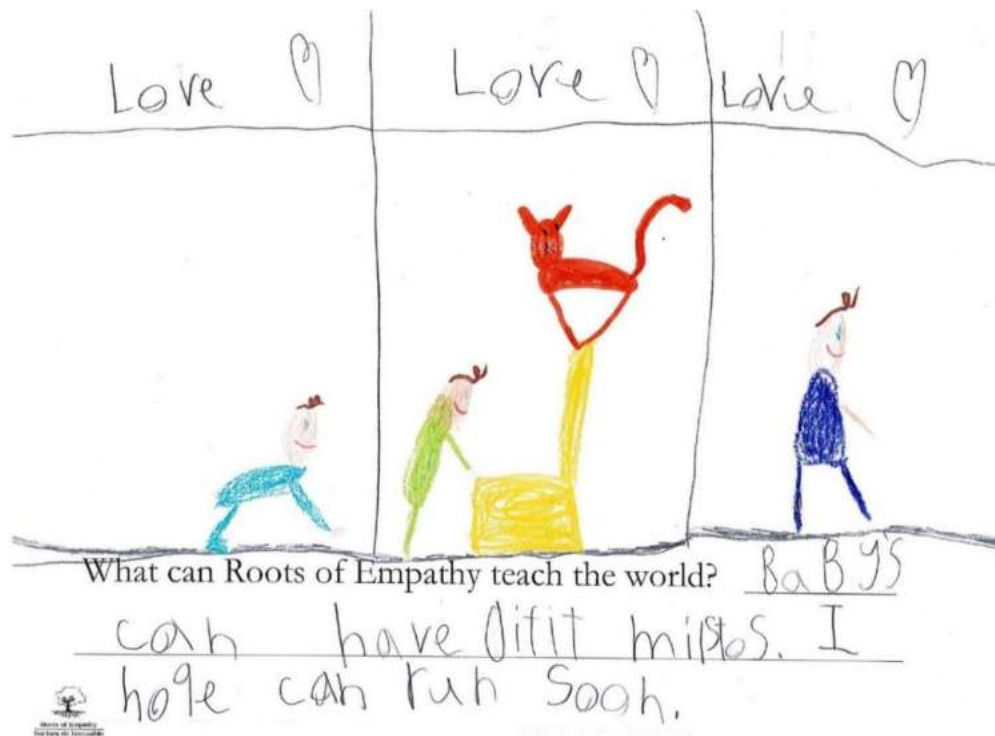 Love Love Love
What can Roots of Empathy teach the world? BaBys
can have Difit milstos. I
hope can run soon.
Roots of Empathy